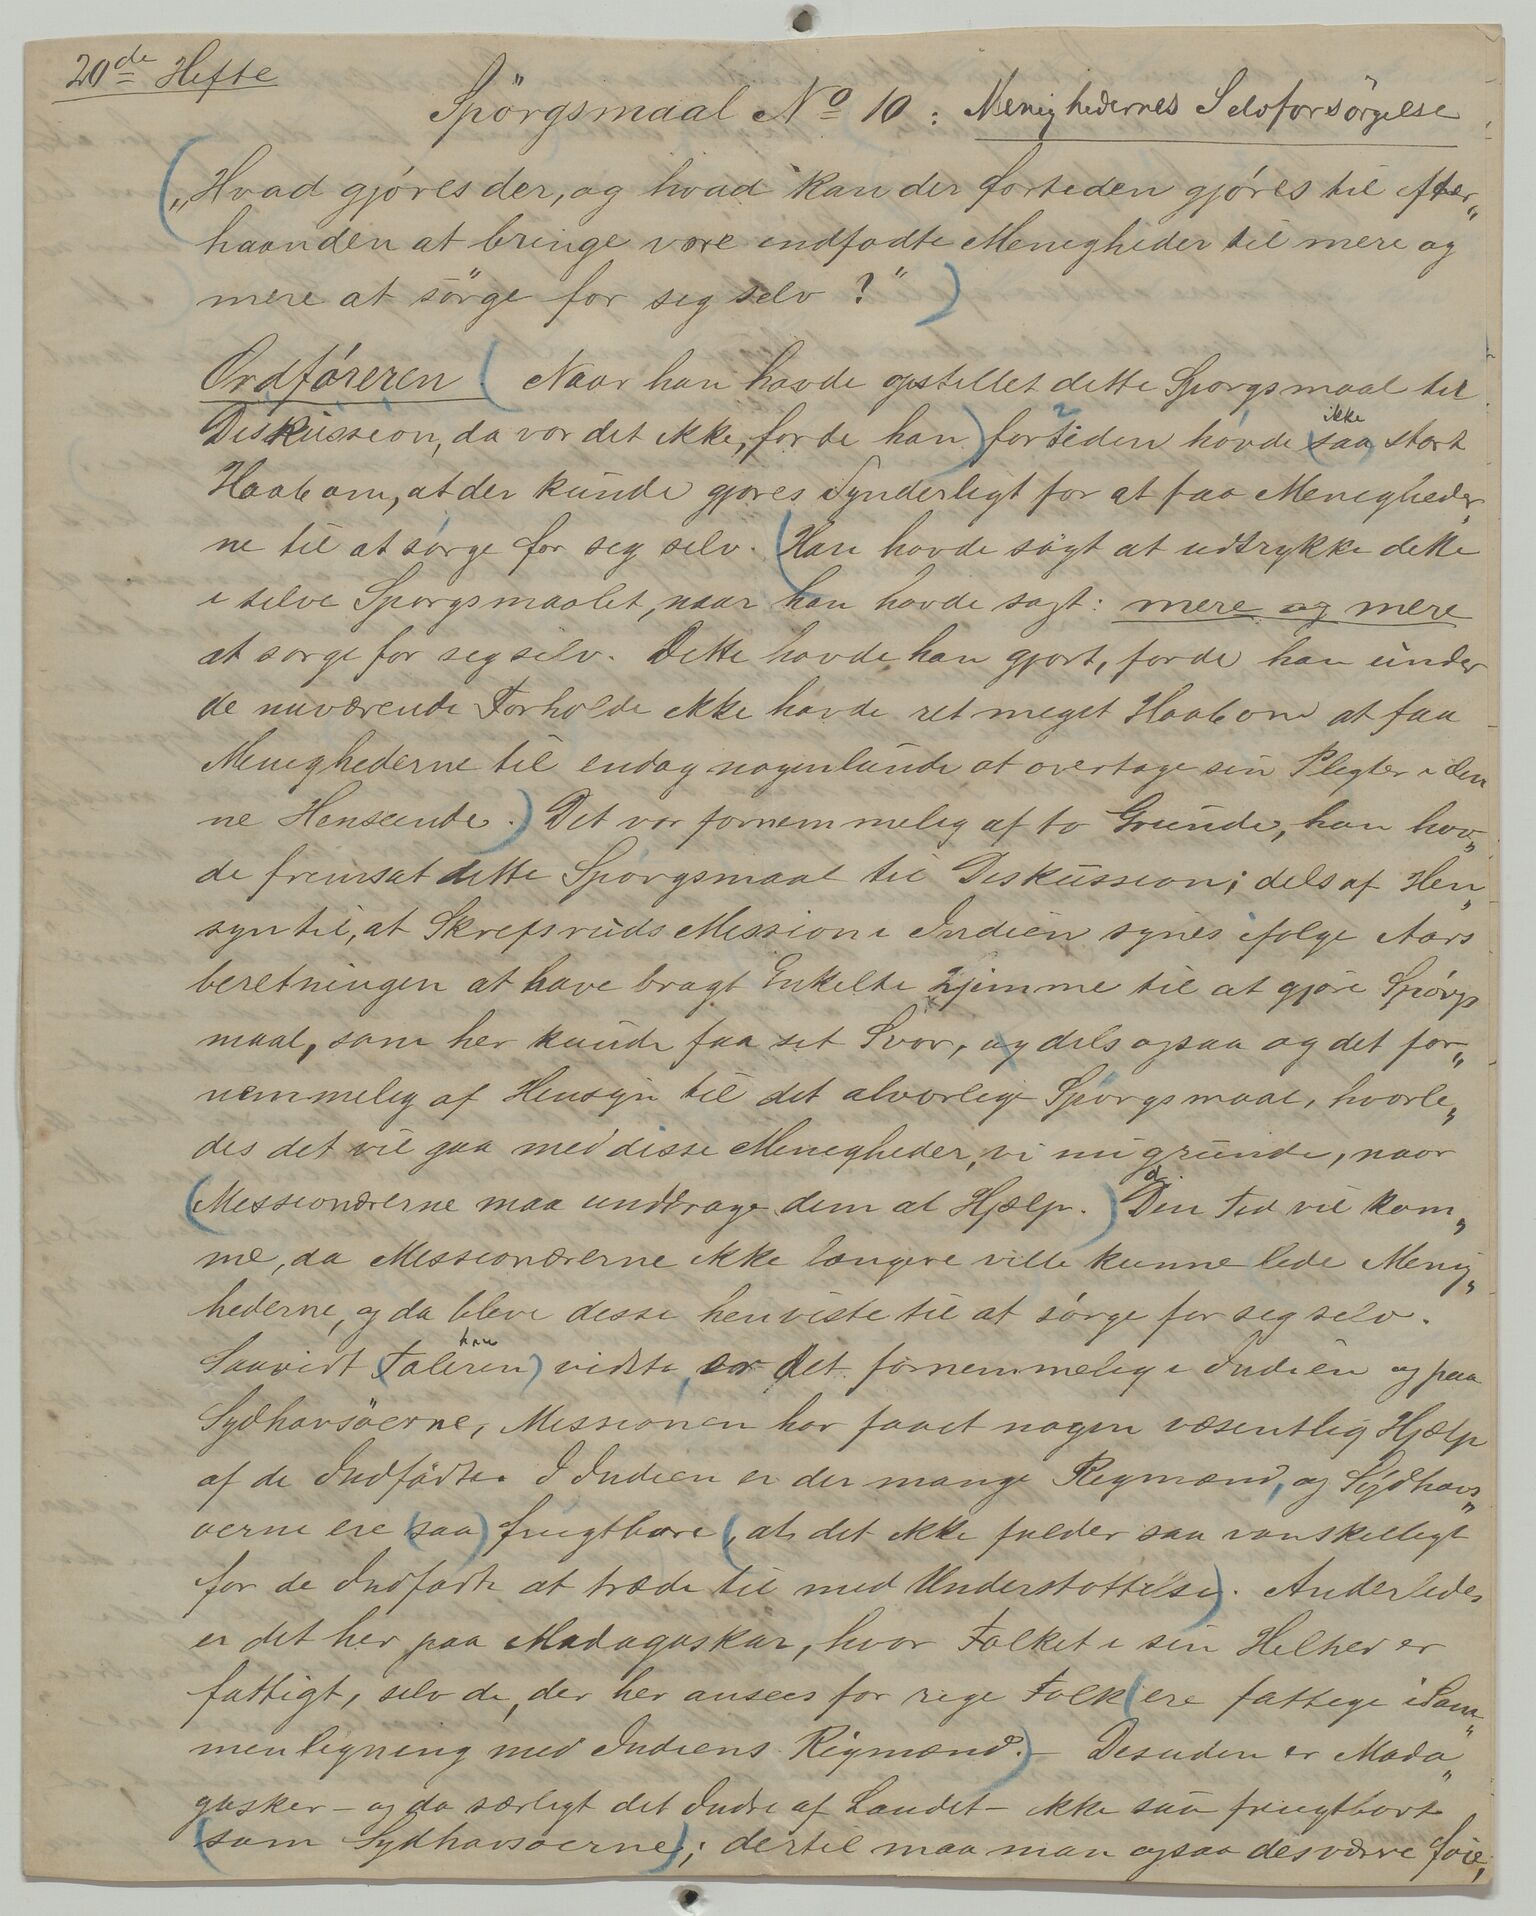 20de Hefte
Spörgsmaal No 10: Menighedernes Selvforsörgelse
„Hvad gjöres der, og hvad kan der fortiden gjöres til efter„
haanden at bringe vore indfødte Menigheder til mere og
mere at sörge for sig selv?"
Ordföreren. Naar han havde opstillet dette Spørgsmaal til
Diskussion, da var det ikke, fordi han fortiden havde ikke saa stort
Haab om, at der kunde gjøres Synderligt for at faa Menigheder„
ne til at sørge for sig selv. Han havde søgt at udtrykke dette
i selve Spørgsmaalet, naar han havde sagt: mere og mere
at sørge for sig selv. Dette havde han gjort, fordi han under
de nuværende Forholde ikke havde ret meget Haab om at faa
Menighederne til endog nogenlunde at overtage sin Pligter i den
ne Henseende. Det var fornemmelig af to Grunde, han hav„
de fremsat dette Spørgsmaal til Diskussion; dels af Hen„
syn til, at Skrefsruds Mission i Indien synes ifølge Aars
beretningen at have bragt Enkelte hjemme til at gjøre Spörgs
maal, som her kunde faa sit Svar, og dels ogsaa og det for„
nemmelig af Hensyn til det alvorlige Spørgsmaal, hvorle„
des det vil gaa med disse Menigheder, vi nu grunde, naar
Missionærerne maa unddrage dem al Hjælp. Den Tid vil kom„
me, da Missionærerne ikke længere ville kunne lede Menig„
hederne, og da bleve desse henviste til at sörge for sig selv.
Saavidt Taleren han vidste, var det fornemmelig i Indien og paa
Sydhavsöerne, Missionen har faaet nogen væsentlig Hjælp
af de Indfödte. I Indien er der mange Rigmænd, og Sydhavs„
øerne ere saa frugtbare, at det ikke falder saa vanskeligt
for de Indfødte at træde til med Understøttelse. Anderledes
er det her paa Madagaskar, hvor Folket i sin Helhed er
fattigt, selv de, der her ansees for rige Folk ere fattige i Sam„
menligning med Indiens Rigmænd. – Desuden er Mada„
gaskar – og da særligt det Indre af Landet – ikke saa frugtbart
som Sydhavsøerne; dertil maa man ogsaa desværre föie,